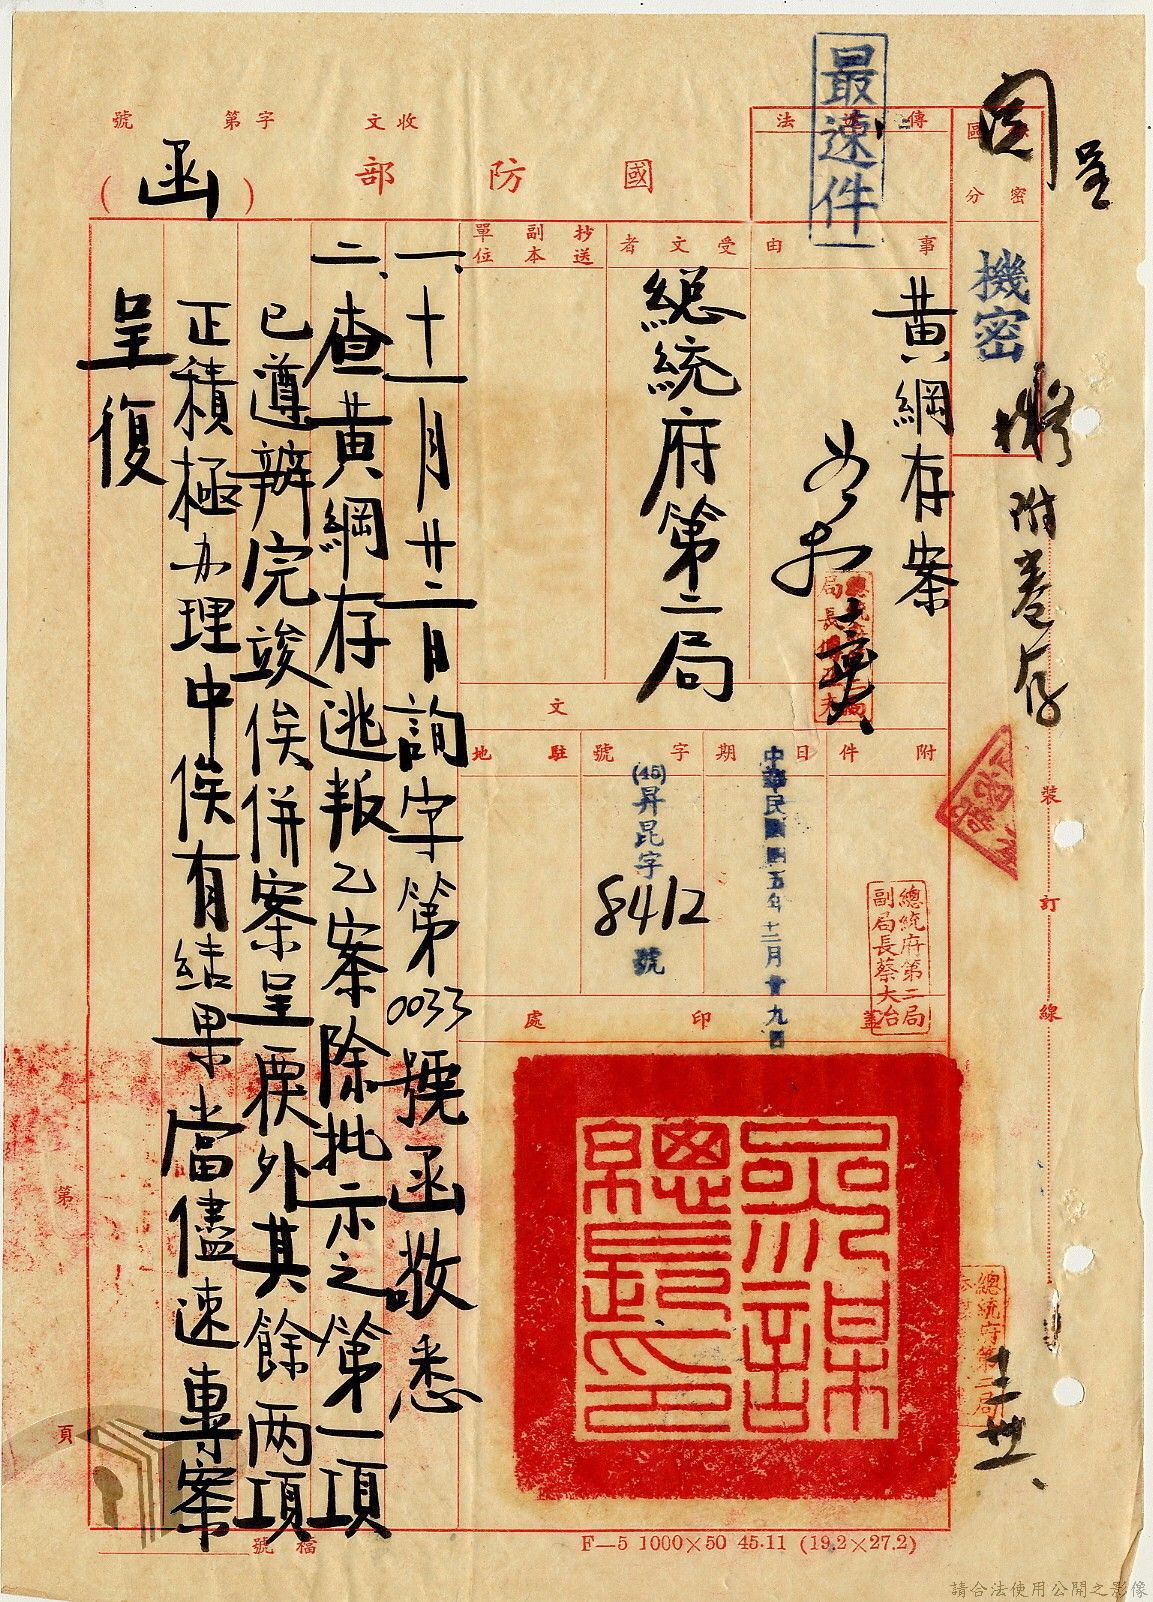 收文 字第 號
國防部 (函)
最速件
傳 法
區分
密
機密
事由
黃綱存案
受文者
總統府第二局
抄送副本單位
附件
日期
中華民國四五年十二月廿九日
字號
(45)昇昆字8412號
駐地
文
蓋印處
參謀總長之印
一、十一月廿二日詢字第0033號函敬悉
二、查黃綱存逃叛乙案除批示之第一項
已遵辦完竣俟併案呈覆外其餘兩項
正積極办理中俟有結果當儘速專案
呈復
呈
附卷存
總統府第二局副局長蔡大治
總統府第二局
裝訂線
第 頁
檔號
F—5 1000×50 45.11 (19.2×27.2)
請合法使用公開之影像